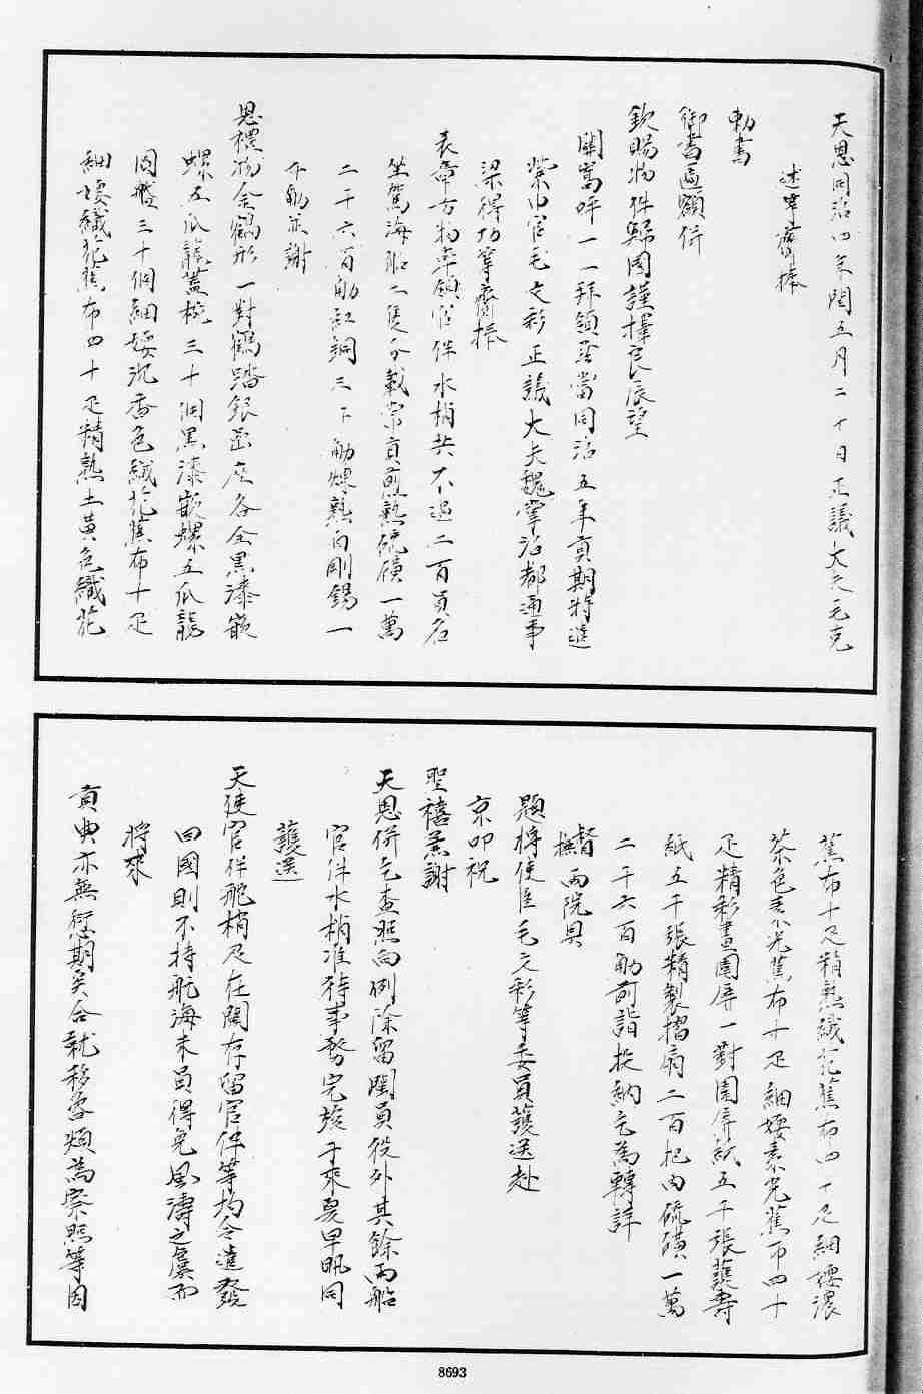 天恩同治四年閏五月二十日正議大夫毛克
述等齎捧
勅書
御書匾額併
欽賜物件歸國謹擇良辰望
闕嵩呼一一拜領至當同治五年貢期特遣
紫巾官毛文彩正議大夫魏掌治都通事
梁得功等齎捧
表章方物率領官伴水梢共不過二百員名
坐駕海船二隻分載常貢煎熟硫磺一萬
二千六百觔紅銅三千觔煉熟白剛錫一
千觔並謝
恩禮物金鶴形一對鶴踏銀岩座各全黑漆嵌
螺五爪龍蓋椀三十個黑漆嵌螺五爪龍
圓盤三十個細嫩沉香色織花蕉布十疋
細嫩織花蕉布四十疋精熟土黃色織花
蕉布十疋精熟織花蕉布四十疋細嫩濃
茶色素光蕉布十疋細嫩素光蕉布四十
疋精彩畫圍屏一對圍屏紙五千張護壽
紙五千張精製摺扇二百把內硫磺一萬
二千六百觔前詣投納乞為轉詳
督撫兩院具
題將使臣毛文彩等委員護送赴
京叩祝
聖禧恭謝
天恩併乞查照向例除留閩員役外其餘兩船
官伴水梢准待事務完竣于來夏早帆同
護送
天使官伴舵梢及在閩存留官伴等均令遣發
回國則不特航海末員得免風濤之虞而
將來
貢典亦無愆期矣合就移咨煩為察照等因
8693